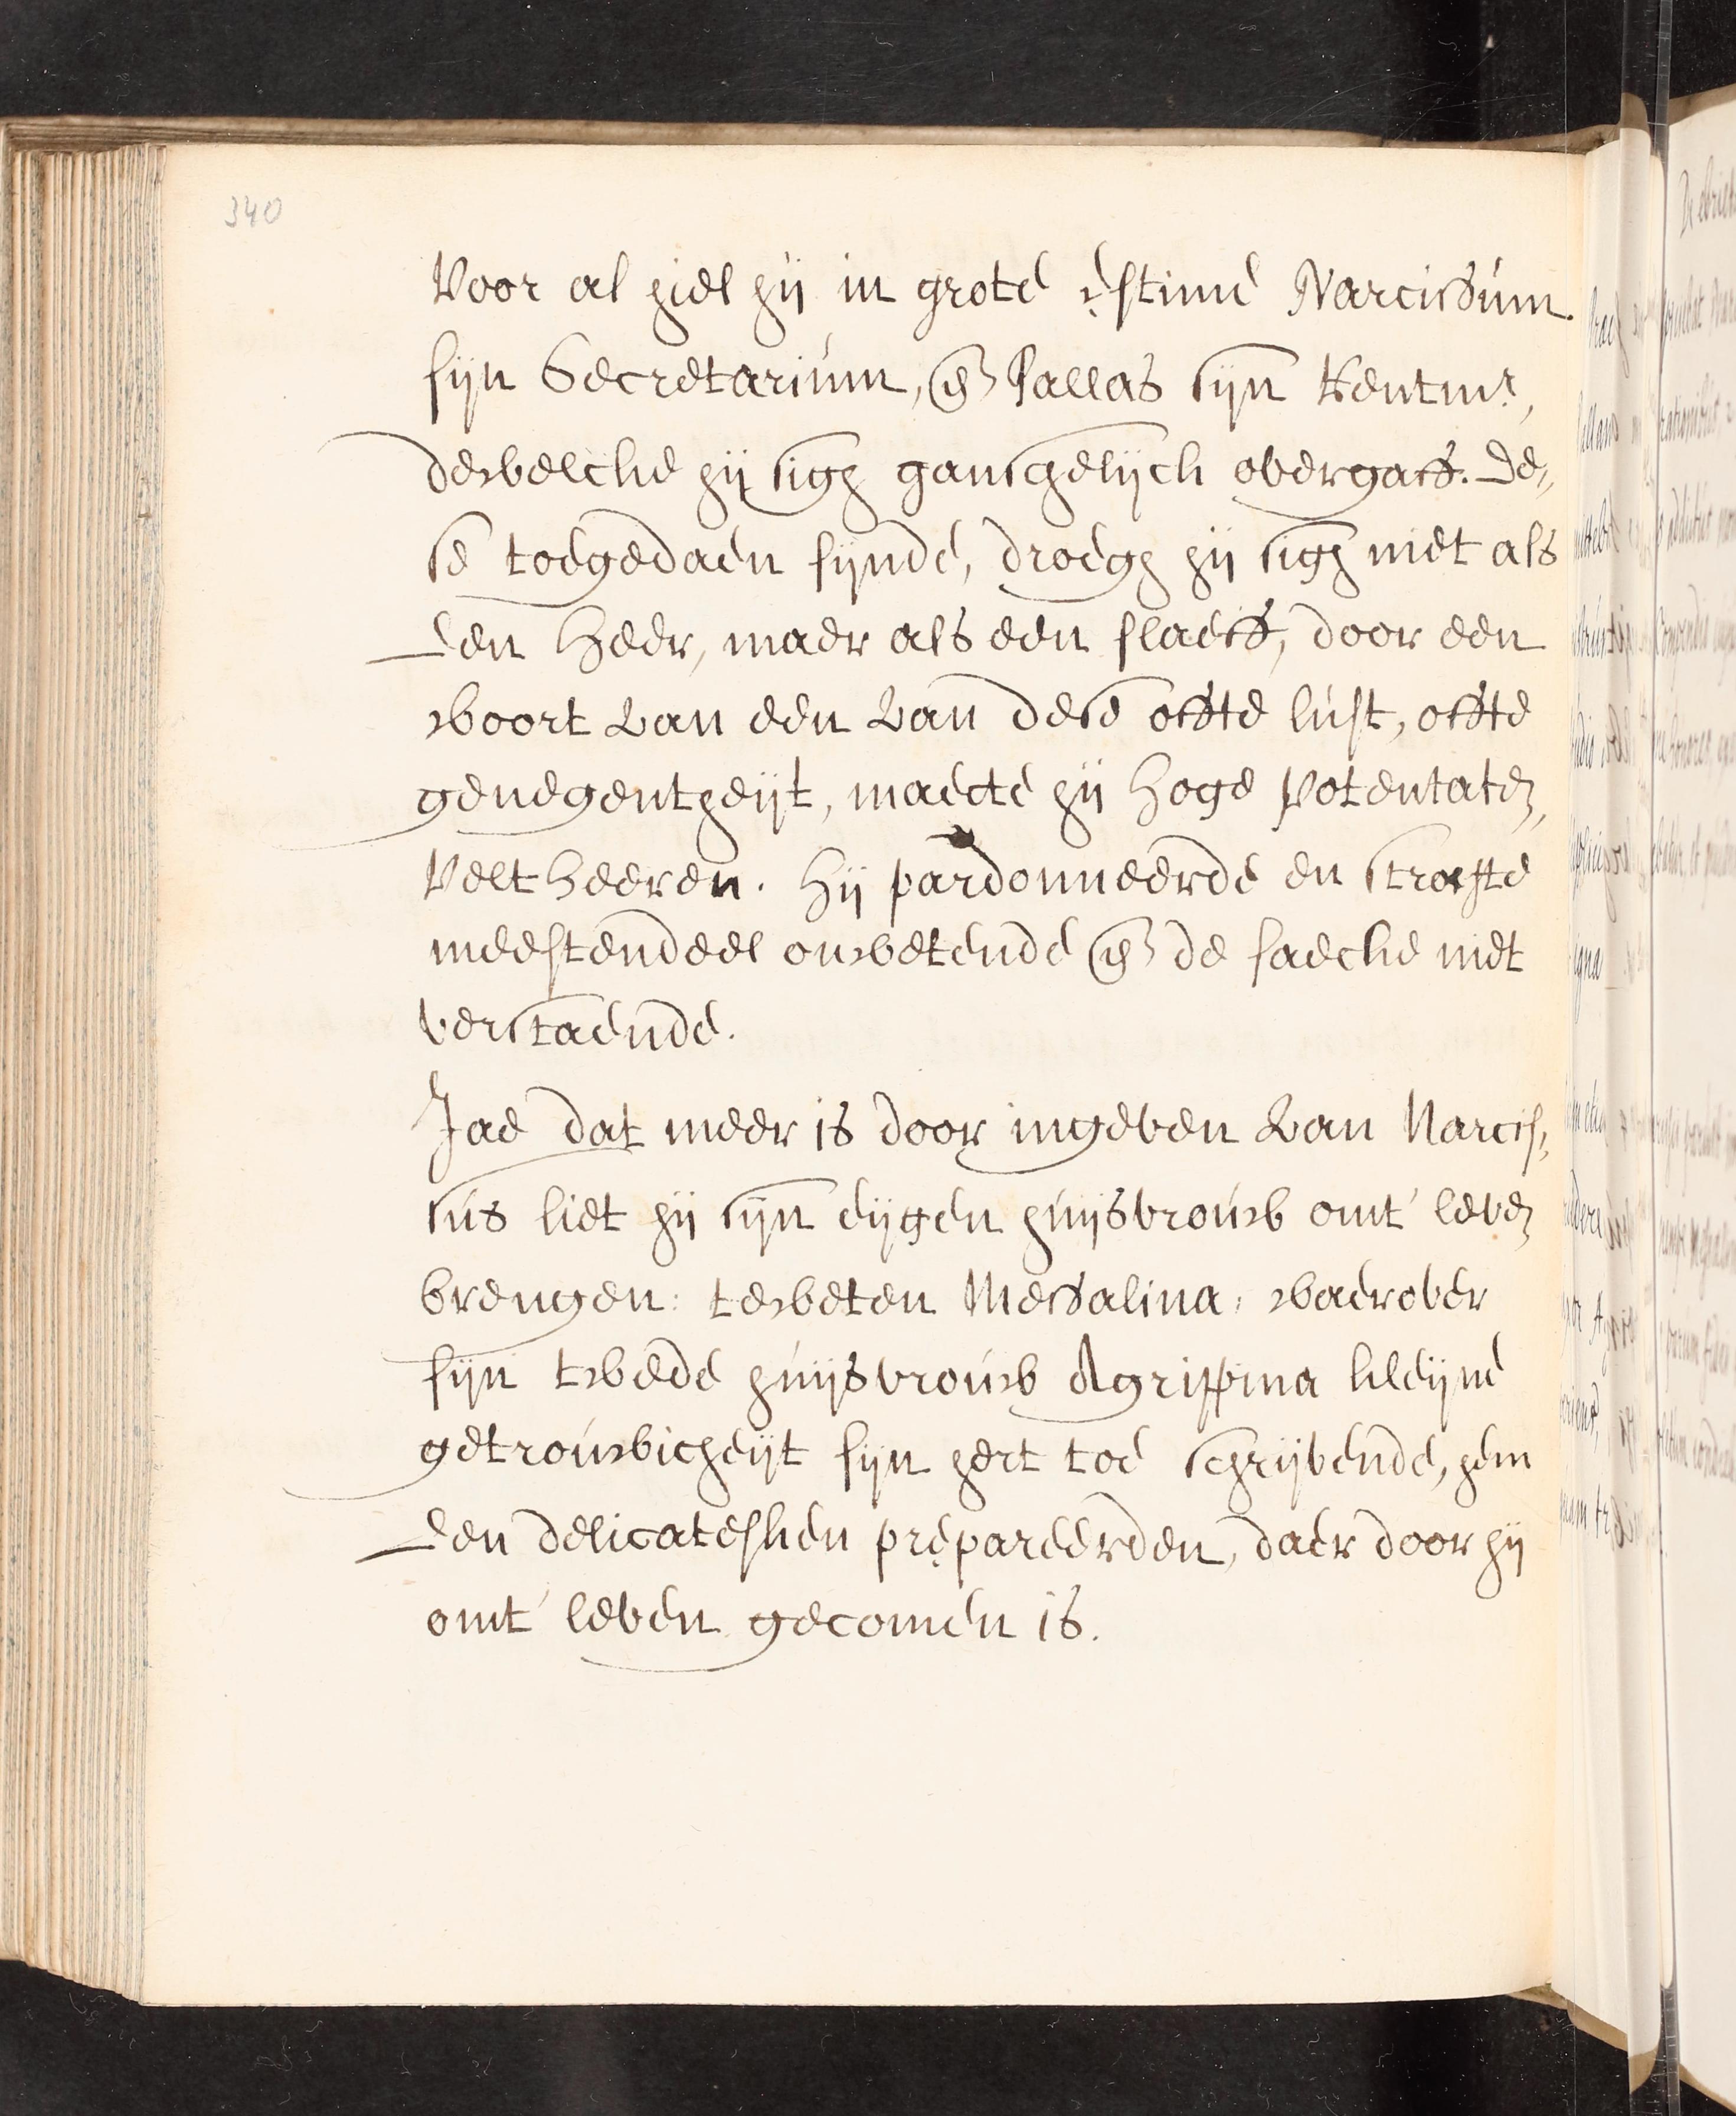 340
Voor al hiel hij in grote ęstime Narcissum
sijn Secretarium, en Pallas sijn Rentmr,
dewelcke hij sigh ganschelijck overgaff. De,,
se toegedaen sijnde, droegh hij sigh niet als
een Heer, maer als een slaeff, door een
woort van een van dese offte lust, offte
genegentheijt, maecte hij Hoge Potentaten,
Veltheeren. Hij pardonneerde en strafte
meestendeel onwetende en de saecke niet
verstaende.
Jae dat meer is door ingeven van Narcis,,
sus liet hij sijn eijgen huijsvrouw omt' leven
brengen: teweten Messalina, waerover
sijn twede huijsvrouw Agrippina kleijne
getrouwicheijt sijn hert toe schrijvende, hem
een delicatesken prępareerden, daer door hij
omt' leven gecomen is.